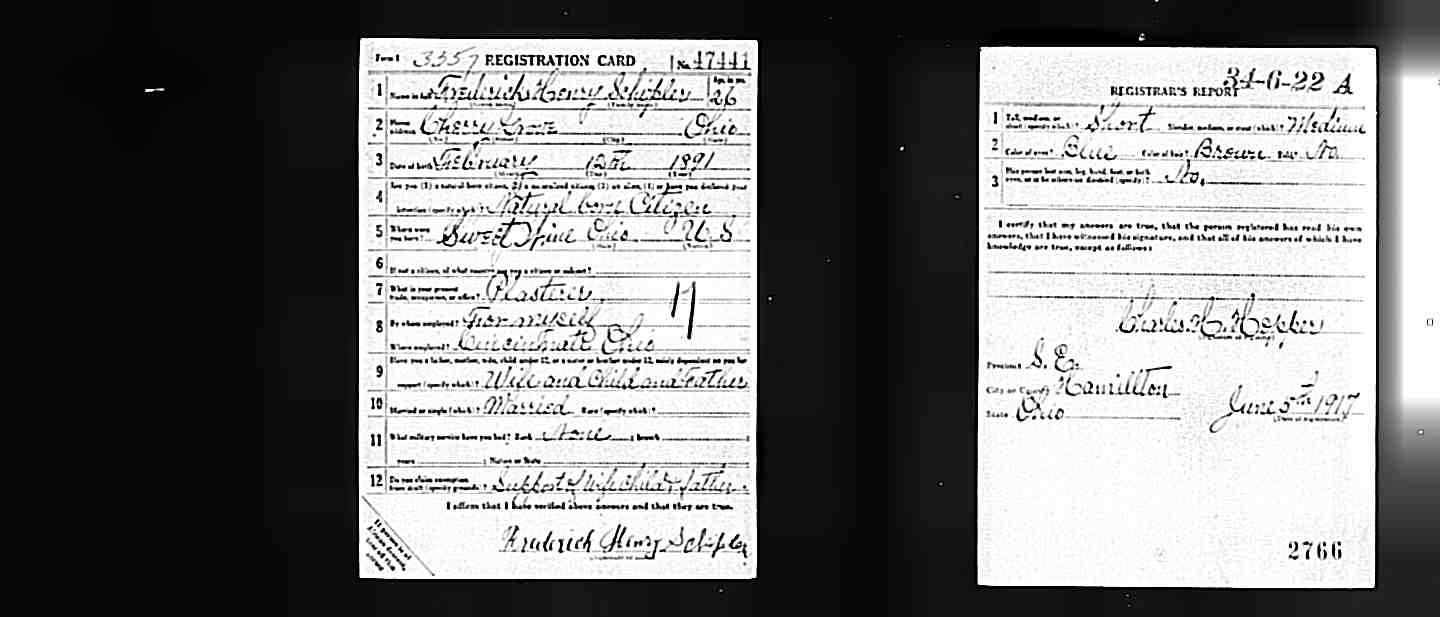 Form 1 3357 REGISTRATION CARD No. 47441
1 Name in full Frederick Henry Schipler Age, in yrs. 26
(Given name) (Family name)
2 Home address Cherry Grove Ohio
(No.) (Street) (City) (State)
3 Date of birth February 12th 1891
(Month) (Day) (Year)
4 Are you (1) a natural born citizen, (2) a naturalized citizen, (3) an alien, (4) or have you declared your
intention (specify which)? Natural born Citizen
5 Where were you born? Sweet Wine Ohio U. S
(Town) (State) (Nation)
6 If not a citizen, of what country are you a citizen or subject?
7 What is your present trade, occupation, or office? Plasterer
8 By whom employed? For myself 11
Where employed? Cincinnati Ohio
9 Have you a father, mother, wife, child under 12, or a sister or brother under 12, solely dependent on you for
support (specify which)? Wife and Child and Father
10 Married or single (which)? Married Race (specify which)?
11 What military service have you had? Rank None ; branch ;
years ; Nation or State
12 Do you claim exemption from draft (specify grounds)? Support of Wife child & father.
I affirm that I have verified above answers and that they are true.
Frederick Henry Schipler
34-6-22 A
REGISTRAR'S REPORT
1 Tall, medium, or short (specify which)? Short Slender, medium, or stout (which)? Medium
2 Color of eyes? Blue Color of hair? Brown Bald? No
3 Has person lost arm, leg, hand, foot, or both eyes, or is he otherwise disabled (specify)? No.
I certify that my answers are true, that the person registered has read his own
answers, that I have witnessed his signature, and that all of his answers of which I have
knowledge are true, except as follows:
Charles H. Hopper
(Signature of registrar)
Precinct S. E.
City or County Hamillton
State Ohio June 5th 1917
(Date of registration)
2766